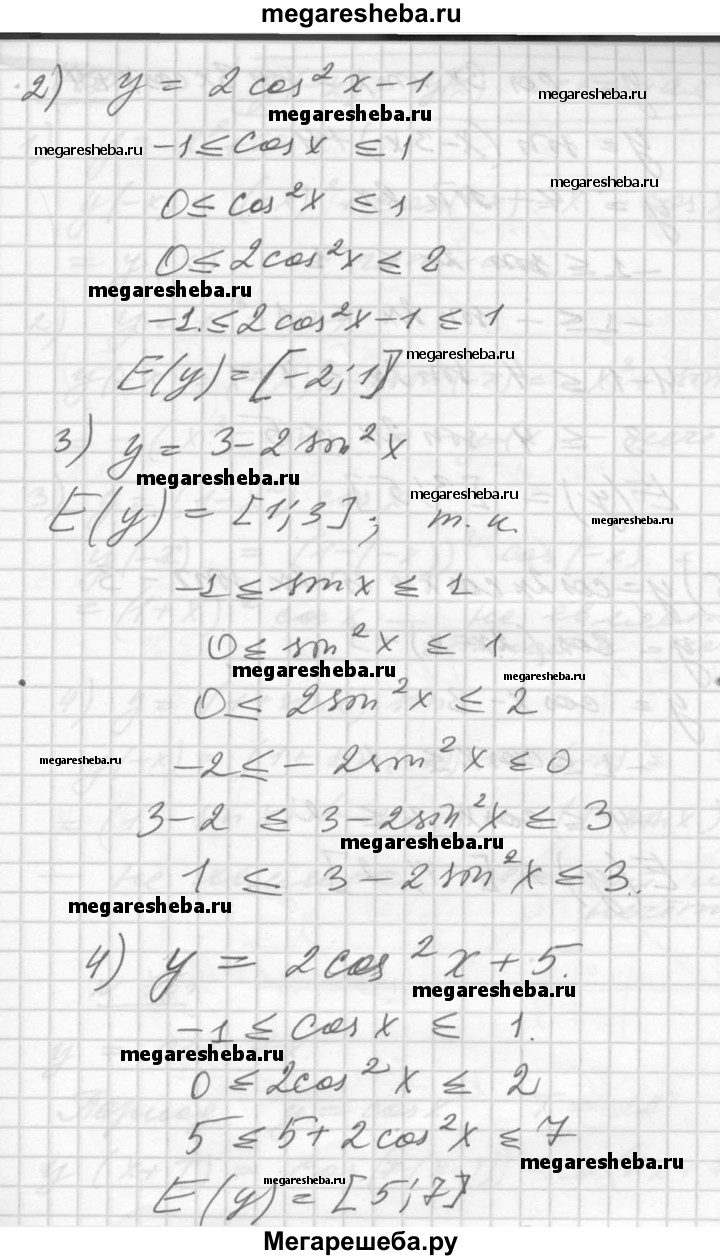 megaresheba.ru
2) y = 2 cos²x - 1
megaresheba.ru
megaresheba.ru
megaresheba.ru -1 ≤ cos x ≤ 1
megaresheba.ru
0 ≤ cos²x ≤ 1
0 ≤ 2cos²x ≤ 2
megaresheba.ru
-1 ≤ 2cos²x - 1 ≤ 1
megaresheba.ru
E(y) = [-2; 1]
3) y = 3 - 2 sin²x
megaresheba.ru
megaresheba.ru
E(y) = [1; 3]; т.к.
megaresheba.ru
-1 ≤ sin x ≤ 1
0 ≤ sin²x ≤ 1
megaresheba.ru
megaresheba.ru
0 ≤ 2sin²x ≤ 2
megaresheba.ru -2 ≤ -2sin²x ≤ 0
3-2 ≤ 3-2sin²x ≤ 3
megaresheba.ru
1 ≤ 3-2sin²x ≤ 3.
megaresheba.ru
4) y = 2cos²x + 5.
megaresheba.ru
-1 ≤ cos x ≤ 1.
megaresheba.ru
0 ≤ 2cos²x ≤ 2
5 ≤ 5+2cos²x ≤ 7
megaresheba.ru
megaresheba.ru
E(y) = [5; 7]
Мегарешеба.ру